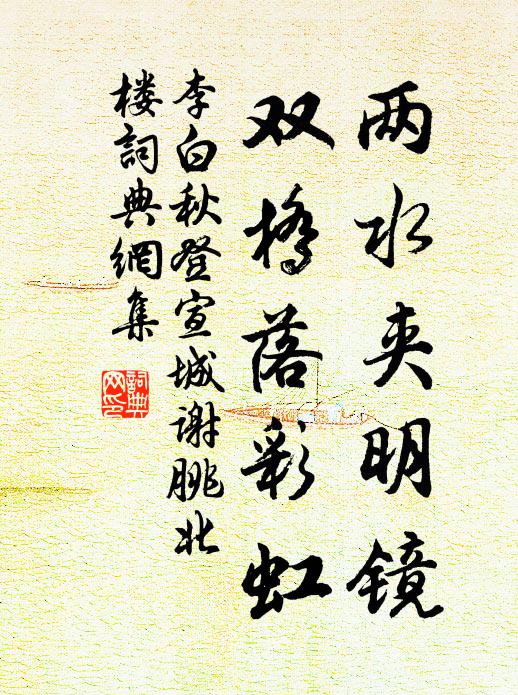 两水夹明镜
双桥落彩虹
李白秋登宣城谢朓北
楼詞典網集
詞典
网印